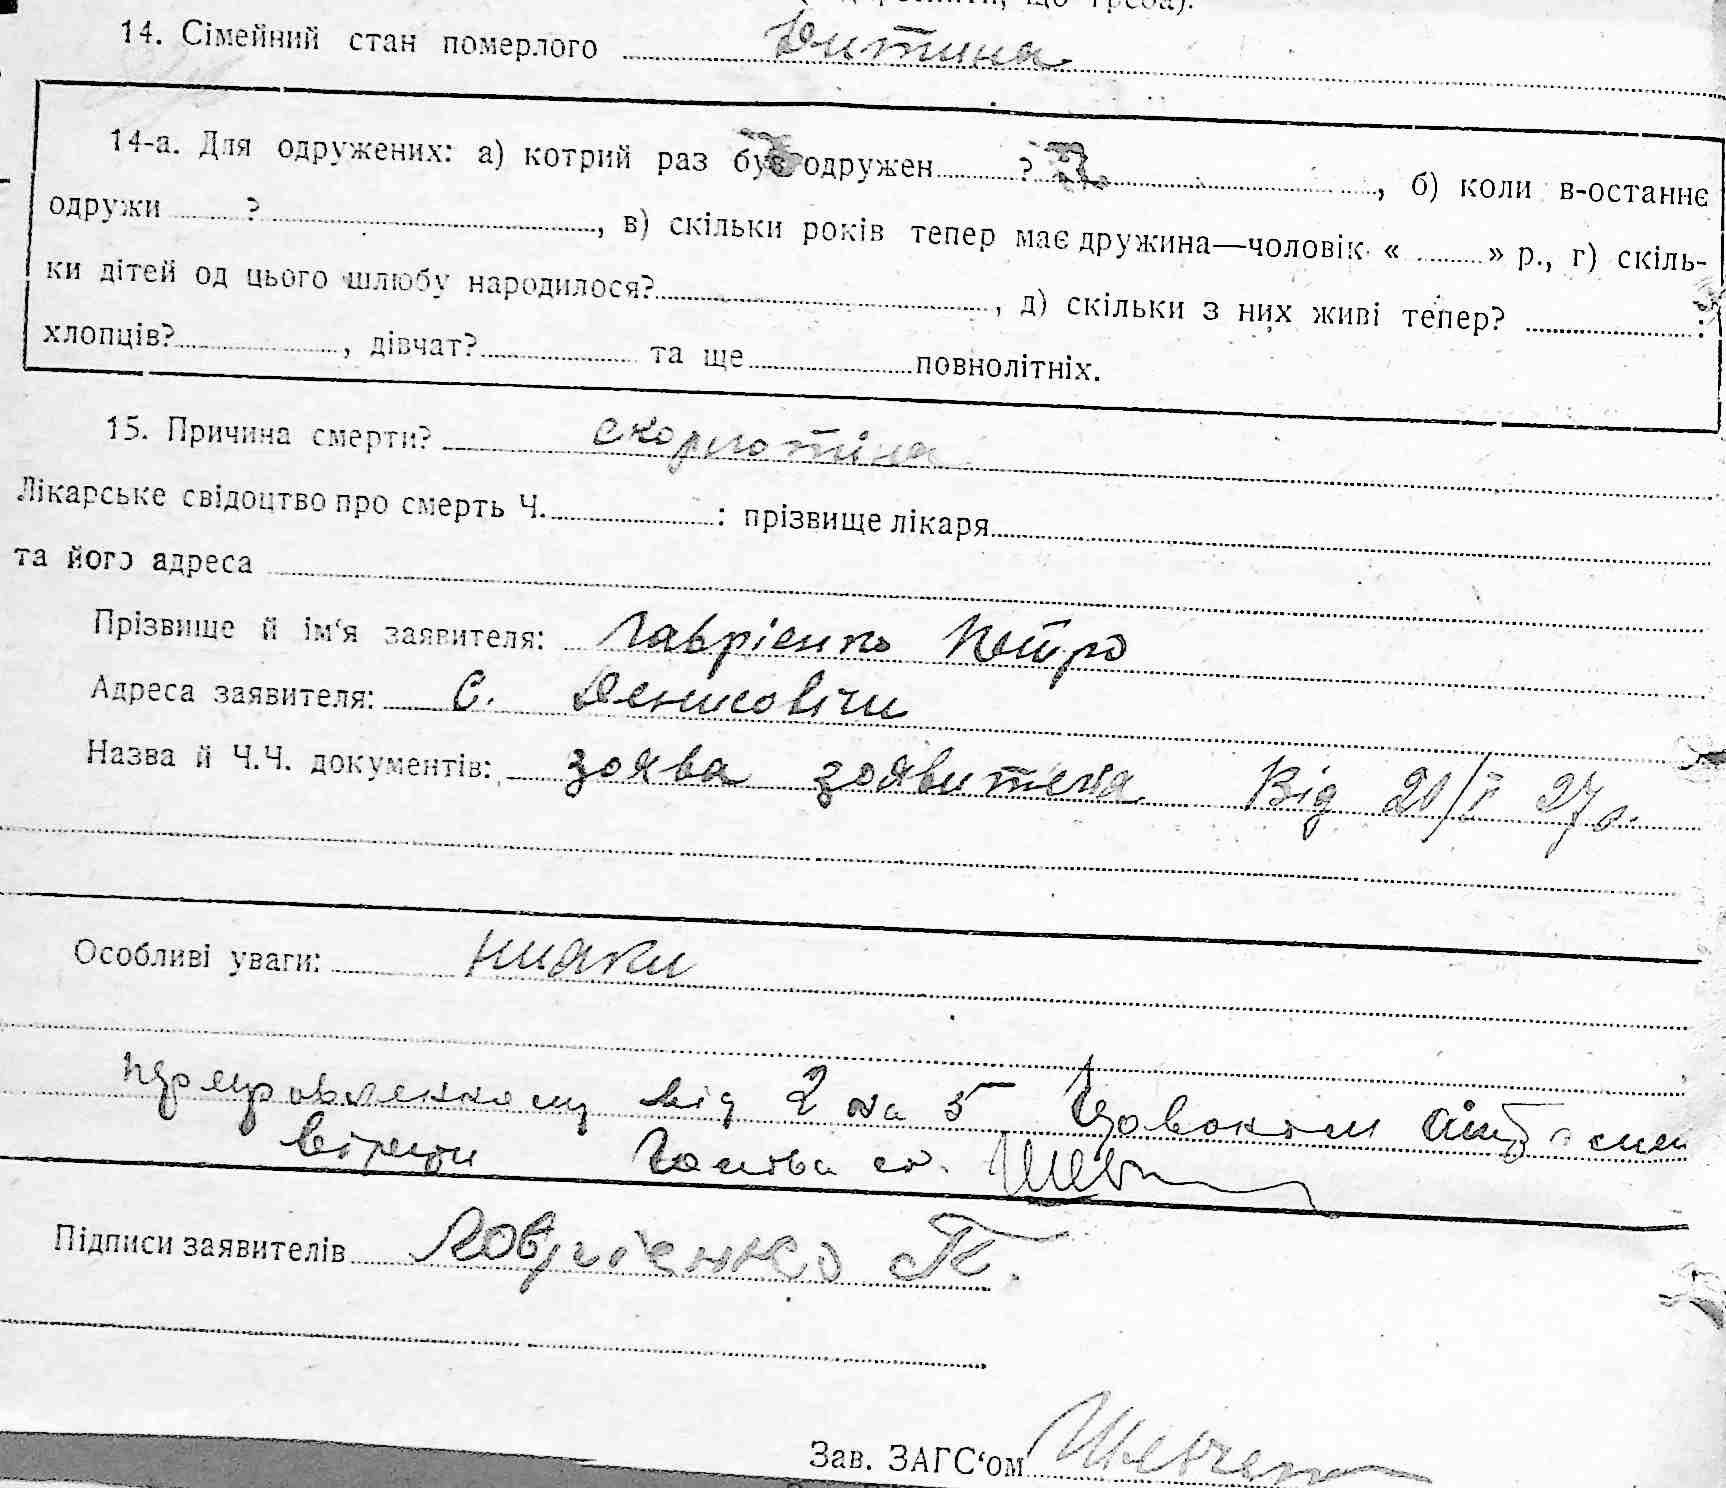 14. Сімейний стан померлого Дитина
14-а. Для одружених: а) котрий раз був одружен ? , б) коли в-останнє
одружи ? , в) скільки років тепер має дружина—чоловік « » р., г) скіль-
ки дітей од цього шлюбу народилося? , д) скільки з них живі тепер? :
хлопців? , дівчат? та ще повнолітніх.
15. Причина смерти? скорлотіна
Лікарське свідоцтво про смерть Ч. : прізвище лікаря
та його адреса
Прізвище й ім'я заявителя: Лаврієнко Петро
Адреса заявителя: С. Денисовічи
Назва й Ч.Ч. документів: зоява зоявителя Від 20/V 27 р.
Особливі уваги: нияки
від 2 на 5
Голова
Підписи заявителів Лаврієнко П.
Зав. ЗАГС'ом